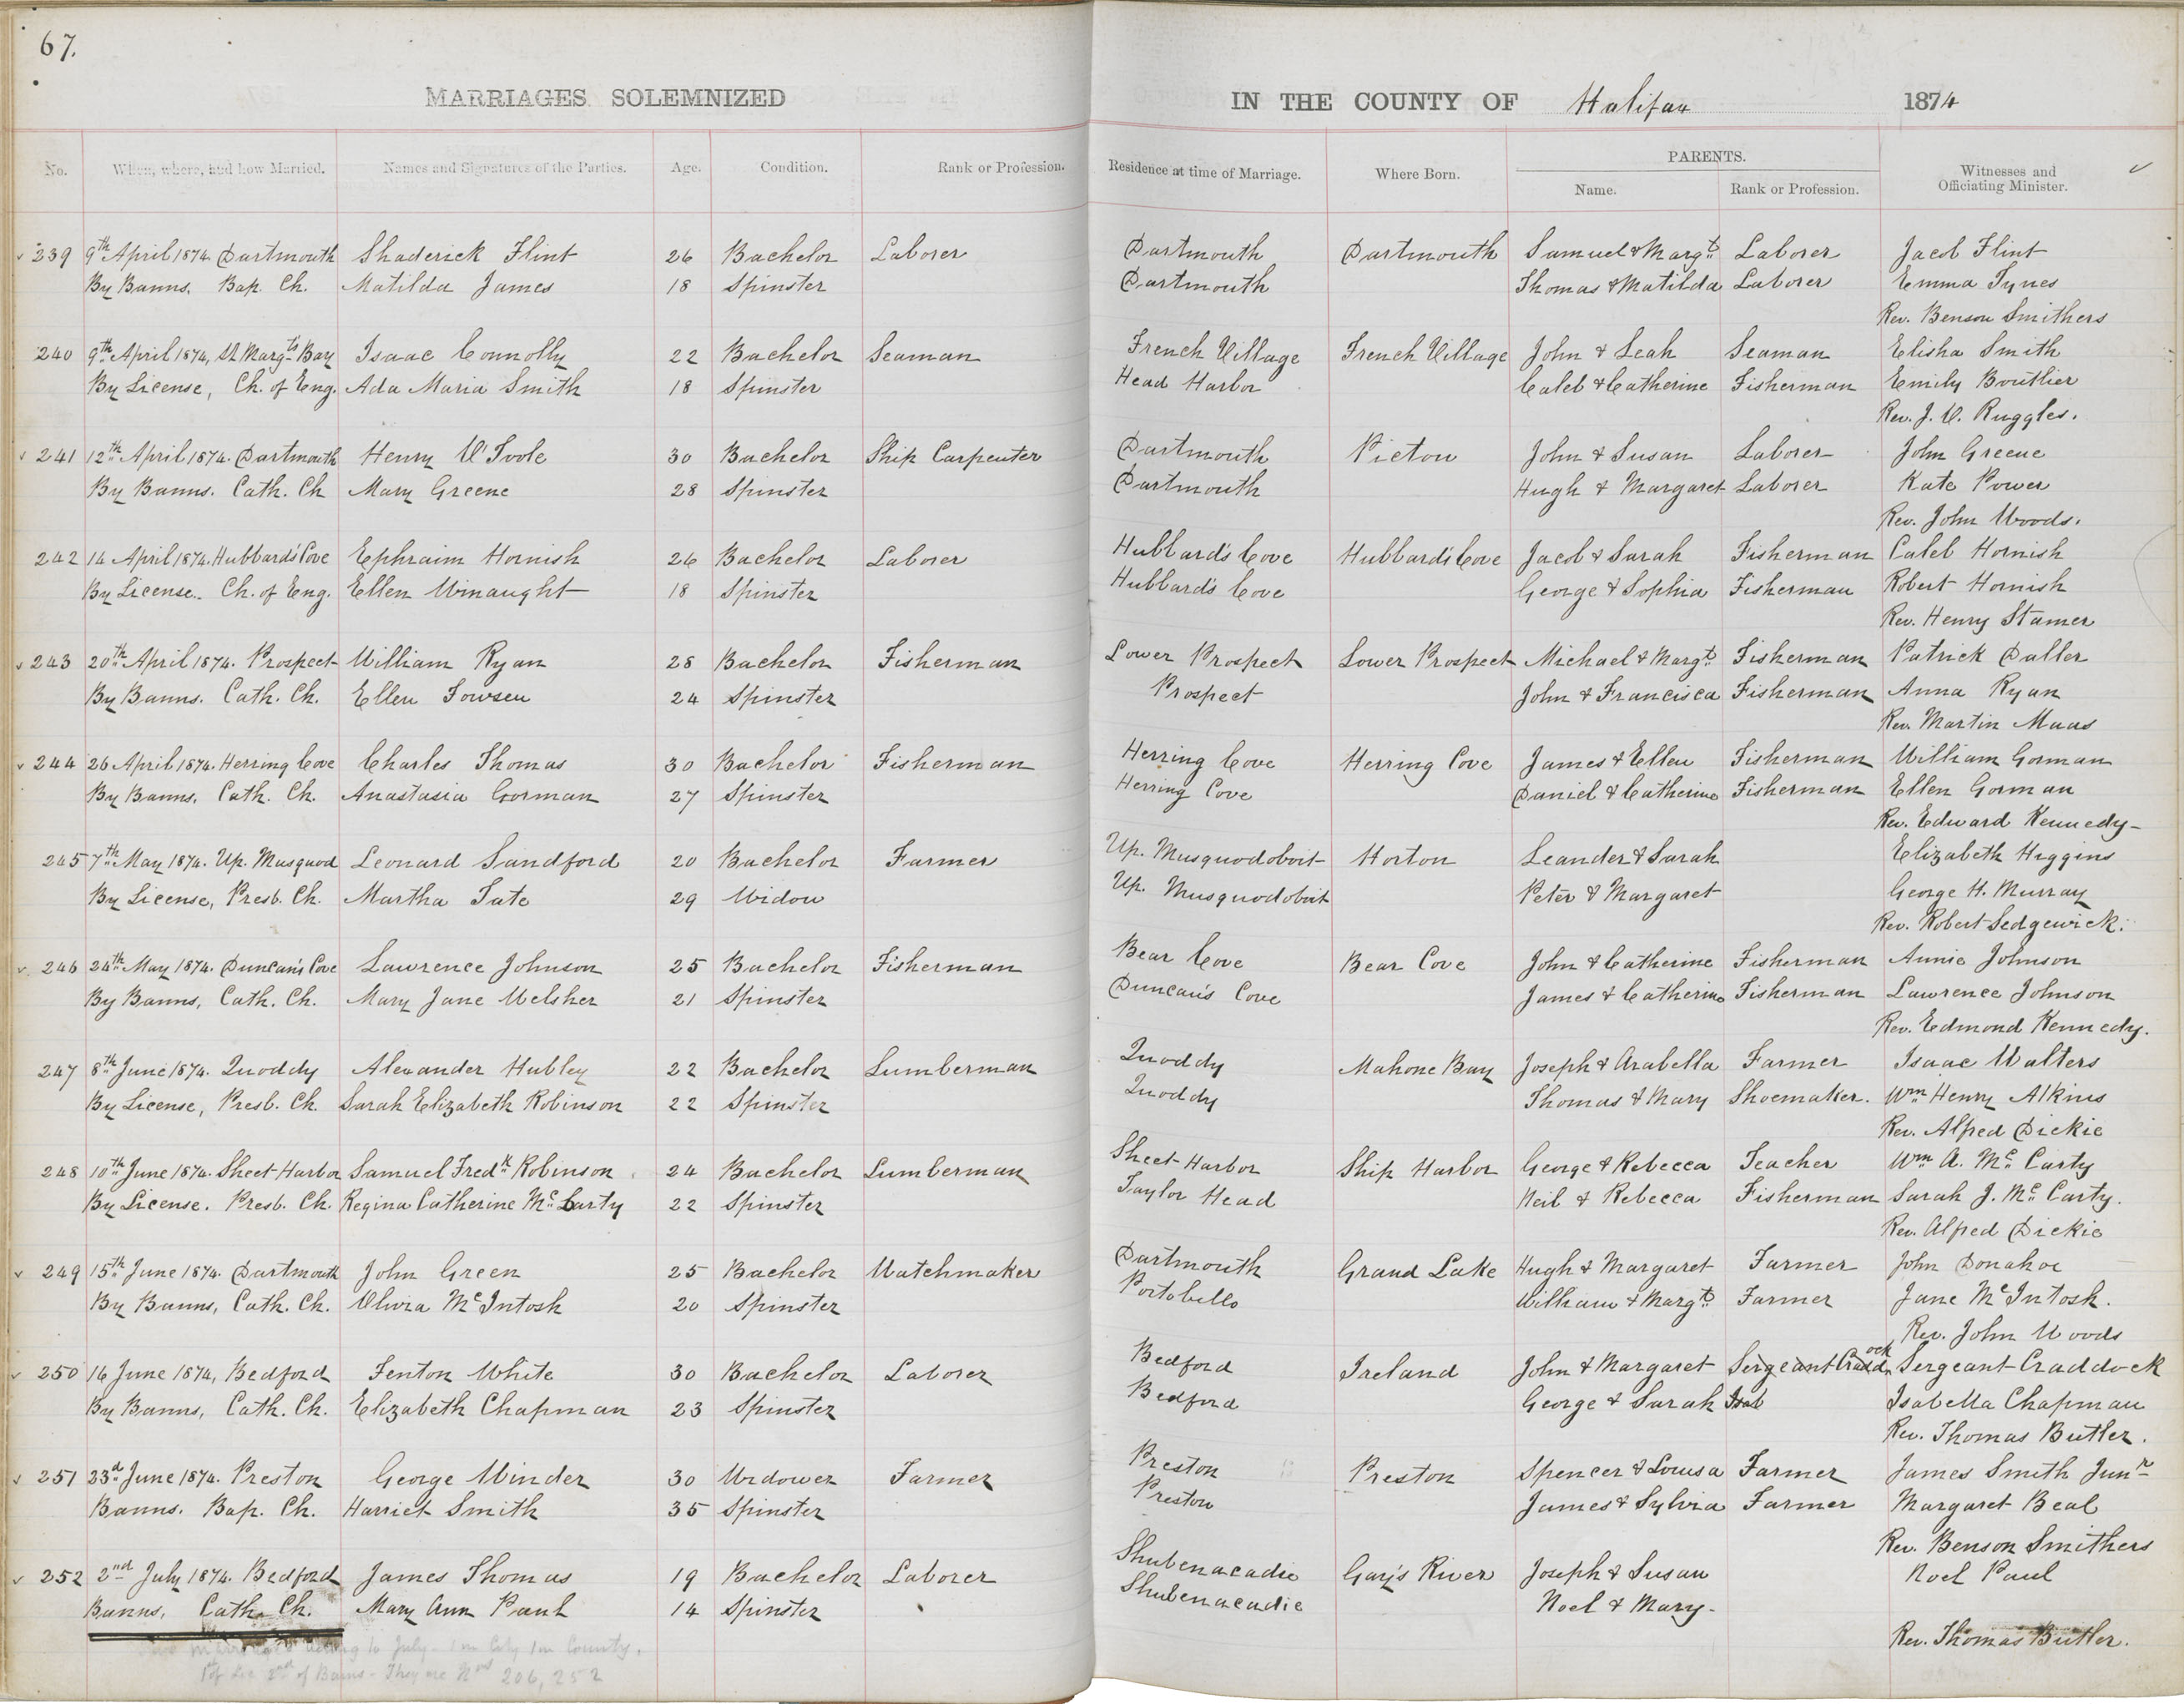 67.
MARRIAGES SOLEMNIZED IN THE COUNTY OF Halifax 1874
No. When, where, and how Married. Names and Signatures of the Parties. Age. Condition. Rank or Profession. Residence at time of Marriage. Where Born. PARENTS. Name. Rank or Profession. Witnesses and Officiating Minister.
239 9th April 1874. Dartmouth Shaderick Flint 26 Bachelor Laborer Dartmouth Dartmouth Samuel & Margt Laborer Jacob Flint
By Banns. Bap. Ch. Matilda James 18 Spinster Dartmouth Thomas & Matilda Laborer Emma Tynes
Rev. Benson Smithers
240 9th April 1874, St Margts Bay Isaac Connolly 22 Bachelor Seaman French Village French Village John & Leah Seaman Elisha Smith
By License, Ch. of Eng. Ada Maria Smith 18 Spinster Head Harbor Caleb & Catherine Fisherman Emily Boutlier
Rev. J. O. Ruggles.
241 12th April 1874. Dartmouth Henry O'Toole 30 Bachelor Ship Carpenter Dartmouth Pictou John & Susan Laborer John Greene
By Banns. Cath. Ch Mary Greene 28 Spinster Dartmouth Hugh & Margaret Laborer Kate Power
Rev. John Woods.
242 14 April 1874. Hubbard's Cove Ephraim Hornish 26 Bachelor Laborer Hubbard's Cove Hubbard's Cove Jacob & Sarah Fisherman Caleb Hornish
By License. Ch. of Eng. Ellen Winaught 18 Spinster Hubbard's Cove George & Sophia Fisherman Robert Hornish
Rev. Henry Stamer
243 20th April 1874. Prospect William Ryan 28 Bachelor Fisherman Lower Prospect Lower Prospect Michael & Margt Fisherman Patrick Daller
By Banns. Cath. Ch. Ellen Fowseu 24 Spinster Prospect John & Francisca Fisherman Anna Ryan
Rev. Martin Maas
244 26 April 1874. Herring Cove Charles Thomas 30 Bachelor Fisherman Herring Cove Herring Cove James & Ellen Fisherman William Gorman
By Banns. Cath. Ch. Anastasia Gorman 27 Spinster Herring Cove Daniel & Catherine Fisherman Ellen Gorman
Rev. Edward Kennedy
245 7th May 1874. Up. Musquod Leonard Sandford 20 Bachelor Farmer Up. Musquodoboit Horton Leander & Sarah Elizabeth Higgins
By License, Presb. Ch. Martha Tate 29 Widow Up. Musquodoboit Peter & Margaret George H. Murray
Rev. Robert Sedgewick.
246 24th May 1874. Duncan's Cove Lawrence Johnson 25 Bachelor Fisherman Bear Cove Bear Cove John & Catherine Fisherman Annie Johnson
By Banns, Cath. Ch. Mary Jane Welsher 21 Spinster Duncan's Cove James & Catherine Fisherman Lawrence Johnson
Rev. Edmond Kennedy.
247 8th June 1874. Quoddy Alexander Hubley 22 Bachelor Lumberman Quoddy Mahone Bay Joseph & Arabella Farmer Isaac Walters
By License, Presb. Ch. Sarah Elizabeth Robinson 22 Spinster Quoddy Thomas & Mary Shoemaker. Wm Henry Atkins
Rev. Alfred Dickie
248 10th June 1874. Sheet Harbor Samuel Fredk Robinson 24 Bachelor Lumberman Sheet Harbor Ship Harbor George & Rebecca Teacher Wm A. Mc Carty
By License. Presb. Ch. Regina Catherine Mc Carty 22 Spinster Taylor Head Neil & Rebecca Fisherman Sarah J. Mc Carty.
Rev. Alfred Dickie
249 15th June 1874. Dartmouth John Green 25 Bachelor Watchmaker Dartmouth Grand Lake Hugh & Margaret Farmer John Donahoe
By Banns, Cath. Ch. Olivia McIntosh 20 Spinster Portobello William & Margt Farmer Jane McIntosh.
Rev. John Woods
250 16 June 1874, Bedford Fenton White 30 Bachelor Laborer Bedford Ireland John & Margaret Sergeant Craddock Sergeant Craddock
By Banns, Cath. Ch. Elizabeth Chapman 23 Spinster Bedford George & Sarah Isab Isabella Chapman
Rev. Thomas Butler.
251 23d June 1874. Preston George Winder 30 Widower Farmer Preston Preston Spencer & Louisa Farmer James Smith Junr
Banns. Bap. Ch. Harriet Smith 35 Spinster Preston James & Sylvia Farmer Margaret Beal
Rev. Benson Smithers
252 2nd July 1874. Bedford James Thomas 19 Bachelor Laborer Shubenacadie Gay's River Joseph & Susan Noel Paul
Banns, Cath. Ch. Mary Ann Paul 14 Spinster Shubenacadie Noel & Mary.
Rev. Thomas Butler.
to July - 1 in City 1 in County.
1st of Lic 2nd of Banns - They are Nos 206, 252